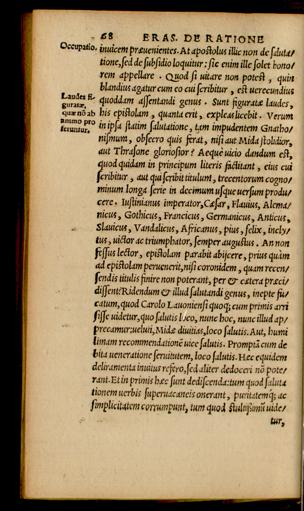 68 ERAS. DE RATIONE
Occupatio.
inuicem præuenientes. At apostolus illic non de saluta/
tione, sed de subsidio loquitur: sic enim ille solet hono/
rem appellare. Quod si uitare non potest, quin
blandius agatur cum eo cui scribitur, est uerecundius
Laudes fi
guratæ,
quæ nõ ab
animo pro
feruntur.
quoddam assentandi genus. Sunt figuratæ laudes,
his epistolam, quanta erit, expleas licebit. Verum
in ipsa statim salutatione, tam impudentem Gnatho/
nismum, obsecro quis ferat, nisi aut Mida stolidior,
aut Thrasone gloriosior? Aeque uicio dandum est,
quod quidam in principum literis factitant, eius cui
scribitur, aut qui scribit titulum, trecentorum cogno/
minum longa serie in decimum usque uersum produ/
cere. Iustinianus imperator, Cæsar, Flauius, Alema/
nicus, Gothicus, Francicus, Germanicus, Anticus,
Slauicus, Vandalicus, Africanus, pius, felix, incly/
tus, uictor ac triumphator, semper augustus. An non
fessus lector, epistolam parabit abijcere, prius quàm
ad epistolam peruenerit, nisi coronidem, quam recen/
sendis titulis finire non poterant, per & cætera præci/
dissent? Ridendum & illud salutandi genus, inepte fu/
catum, quod Carolo uisum cum primis arri
sisse uidetur, quo salutis loco, nunc hoc, nunc illud ap/
precamur: uelut, Midæ diuitias, loco salutis. Aut, humi
limam recommendationẽ uice salutis. Promptã cum de
bita ueneratione seruitutem, loco salutis. Hæc equidem
deliramenta inuitus refero, sed aliter dedoceri nõ pote/
rant. Et in primis hæc sunt dediscenda: tum quod saluta
tionem uerbis superuacaneis onerant, puritatemq; ac
simplicitatem corrumpunt, tum quod stultissimũ uide/
tur,